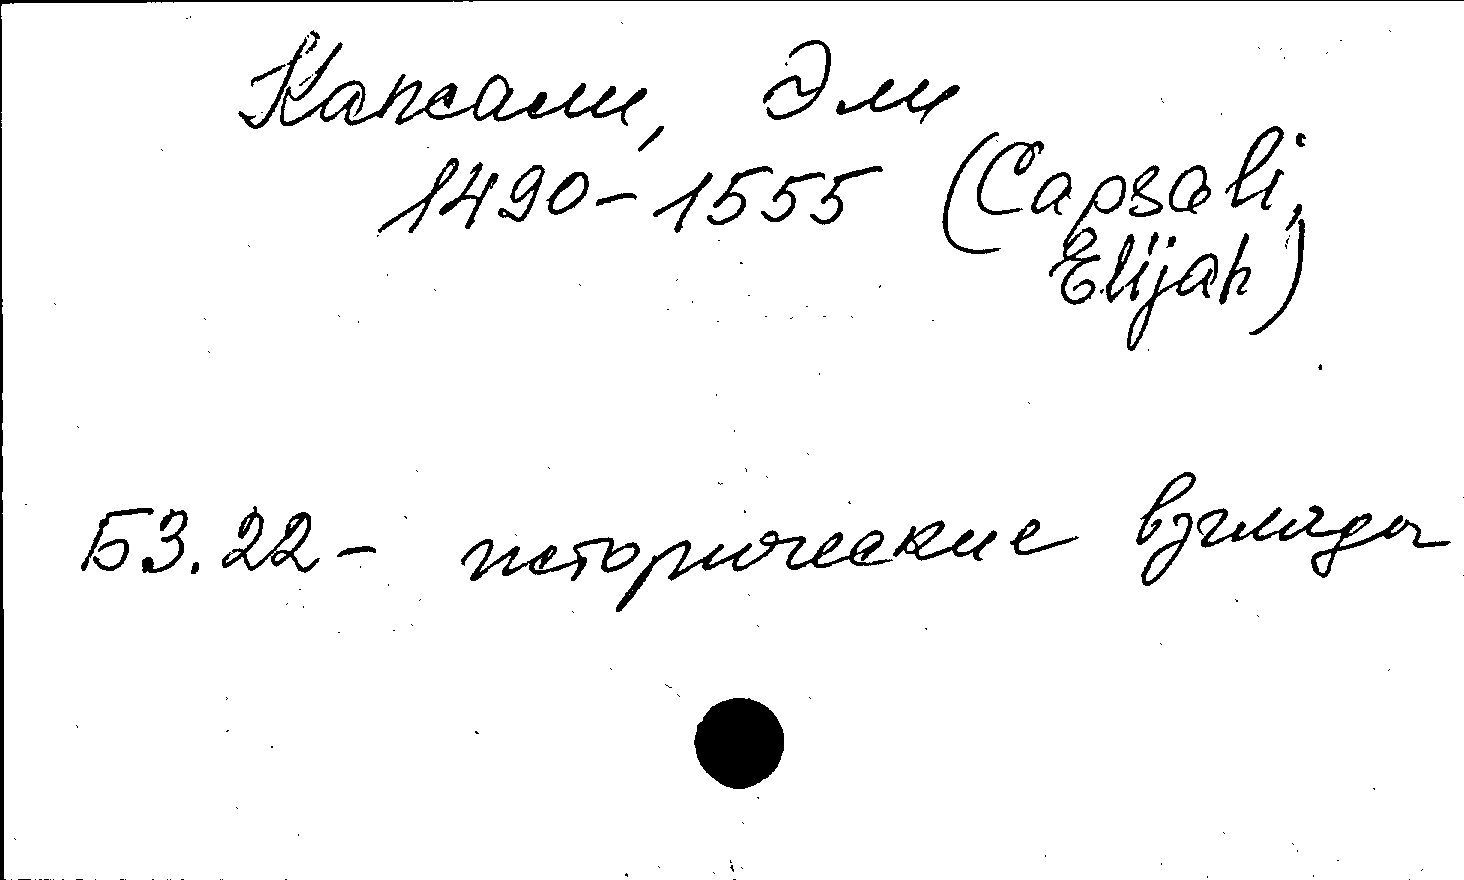 Капсали, Эли
1490-1555 (Capsali,
Elijah)
Б3.22- исторические взгляды